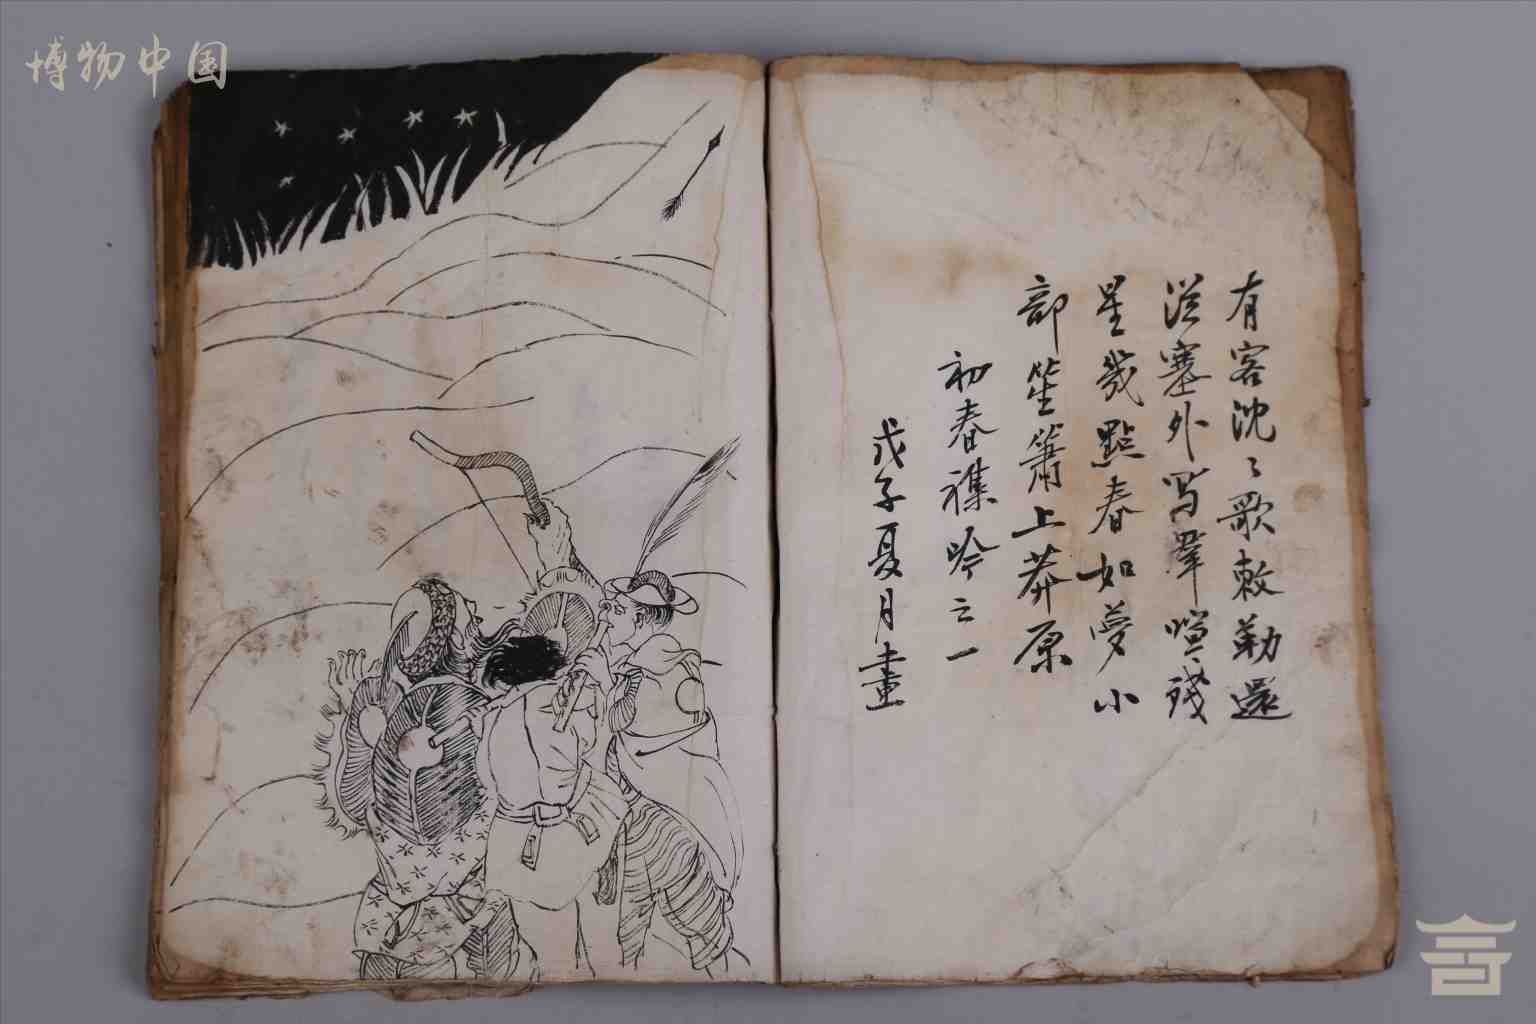 博物中国
有客沈〻歌敕勒還
從塞外写羣喧残
星幾點春如夢小
部笙簫上莽原
初春襍吟之一
戊子夏月畫